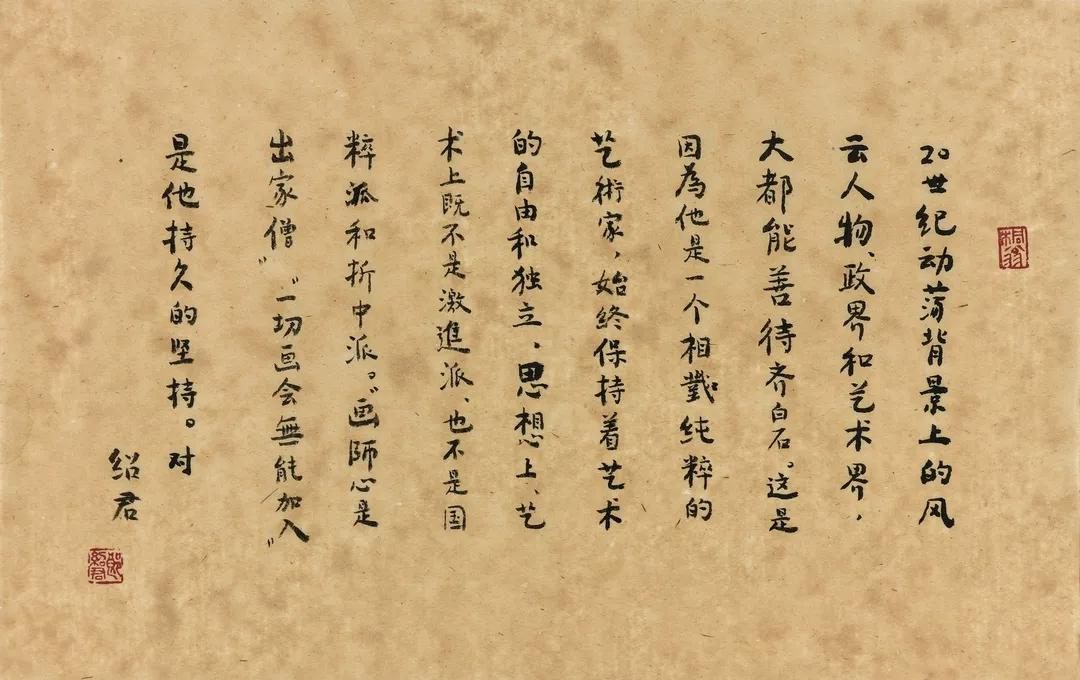 20世纪动荡背景上的风
云人物、政界和艺术界，
大都能善待齐白石。这是
因為他是一个相對纯粹的
艺術家，始終保持着艺术
的自由和独立、思想上、艺
术上既不是激進派、也不是国
粹派和折中派。“画師心是
出家僧”“一切画会無能加入”
是他持久的坚持。对
绍君
桐翁
郎绍君